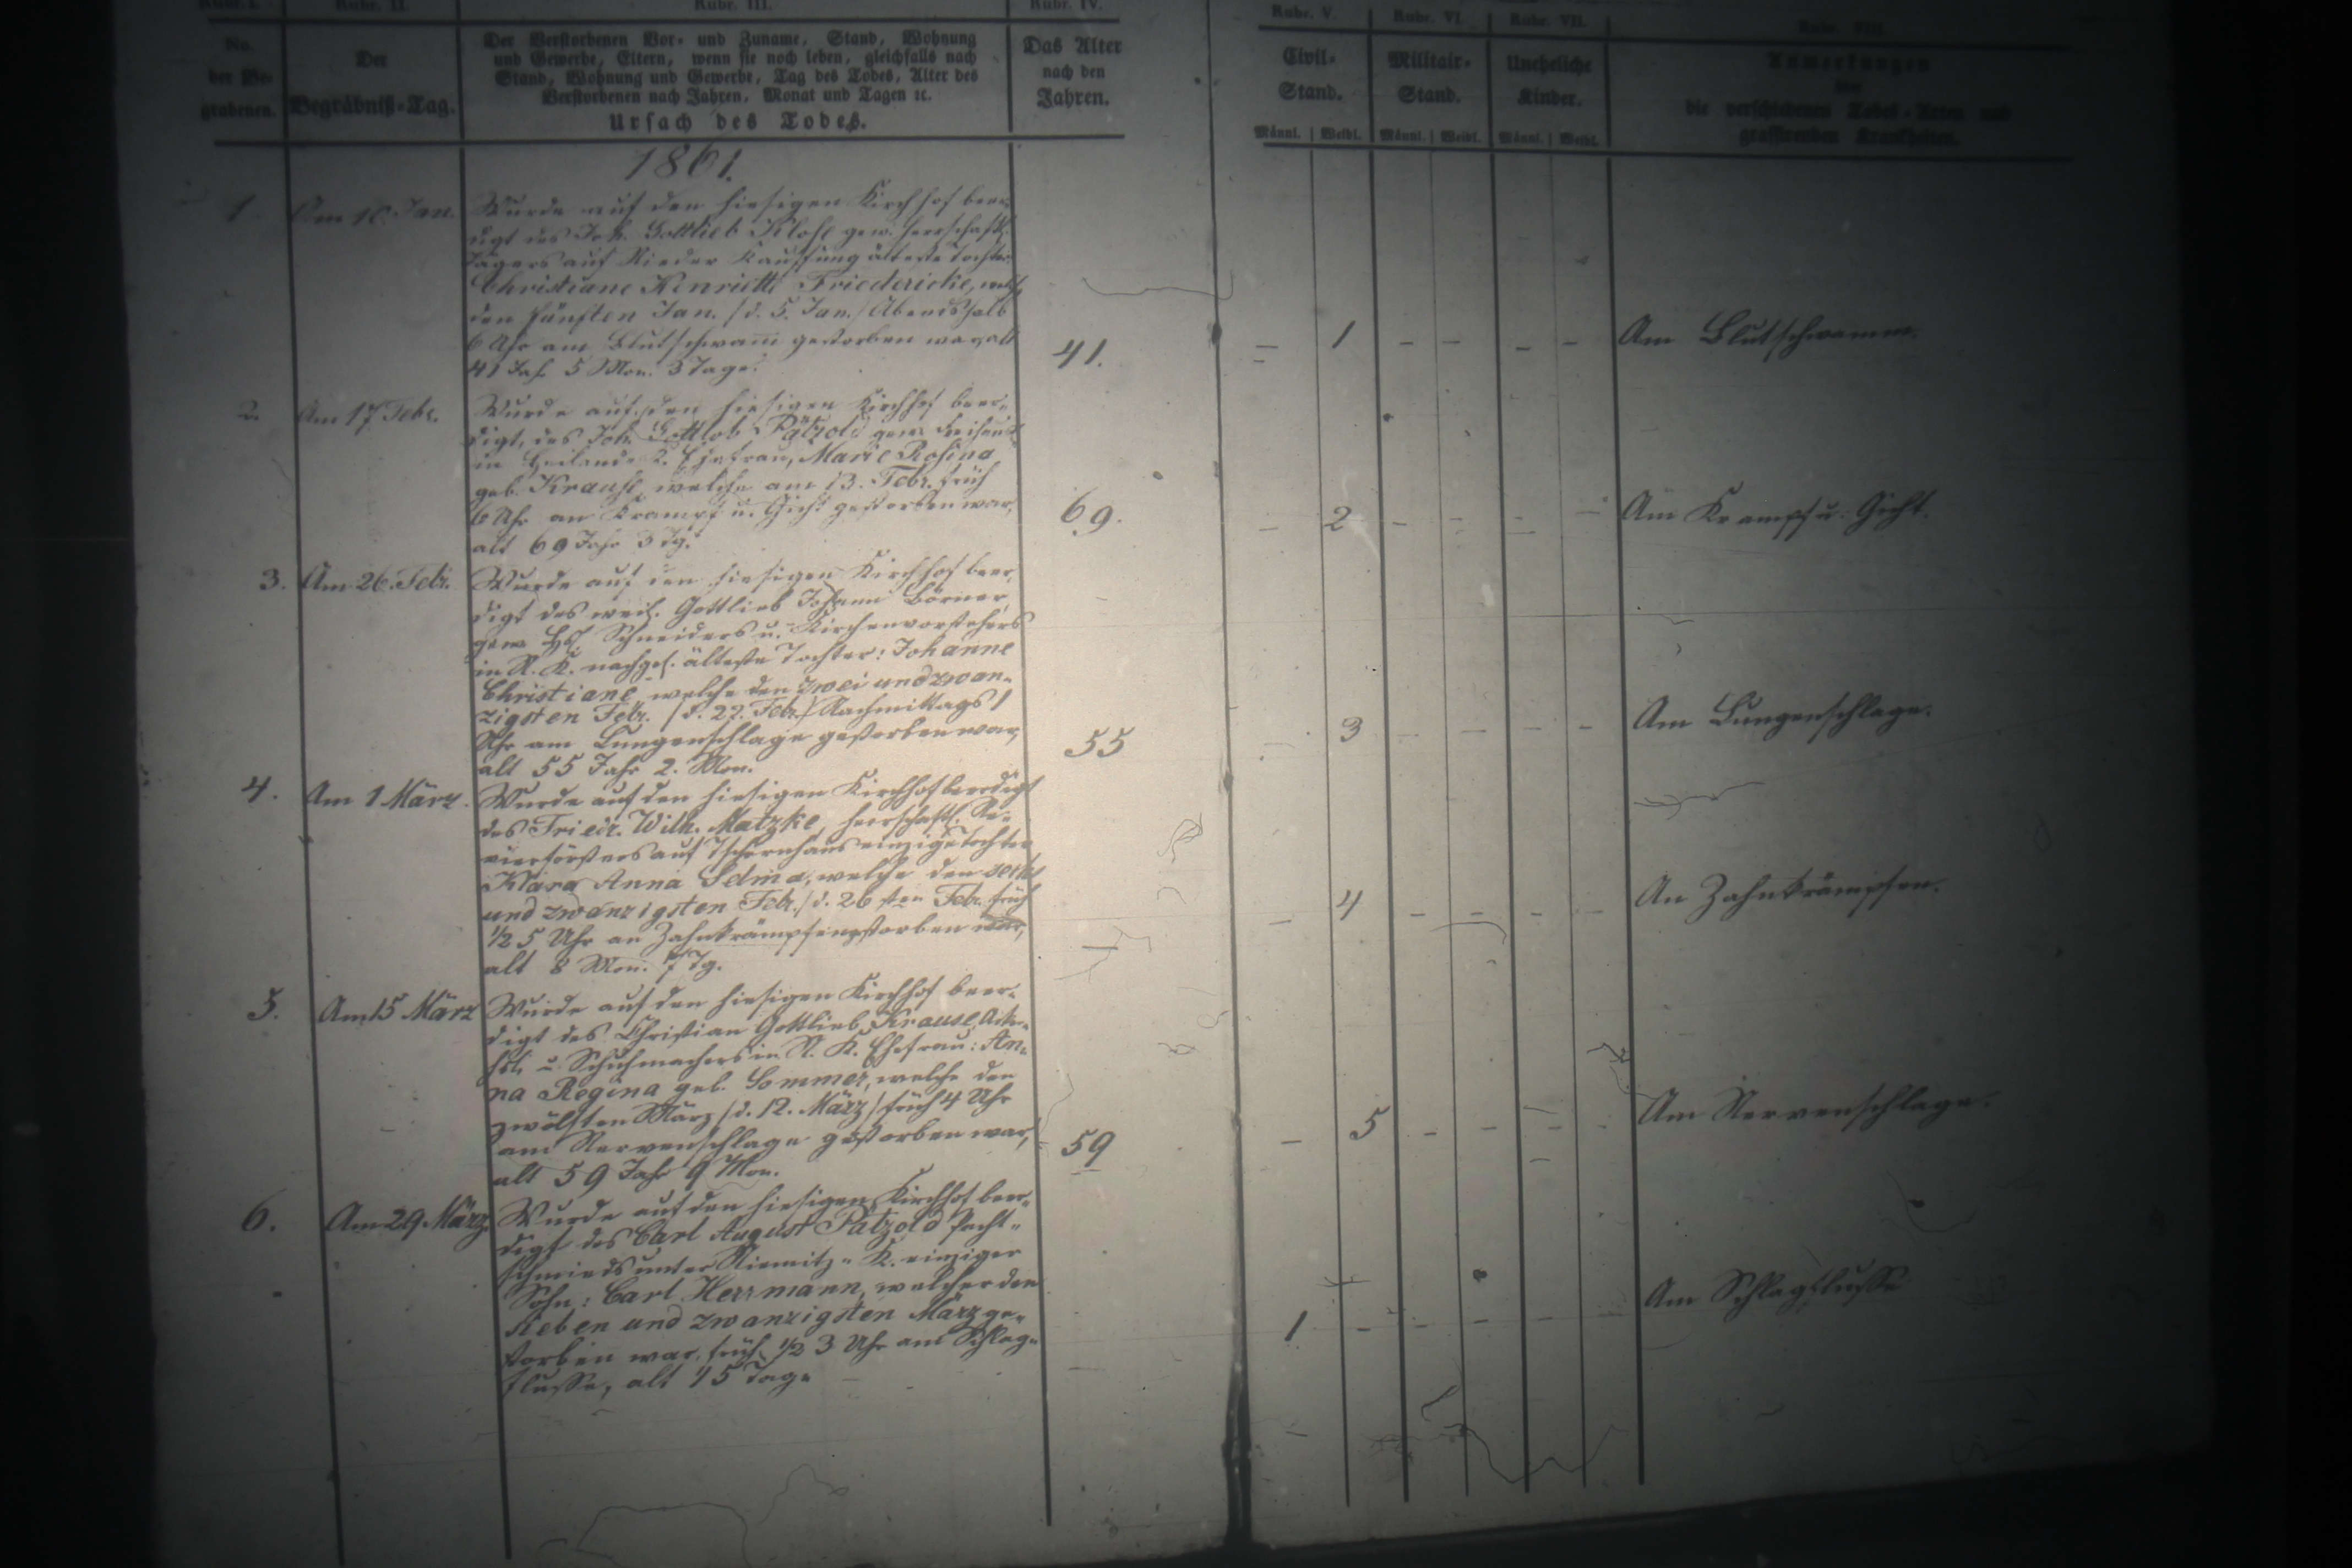 Rubr. I. Rubr. II. Rubr. III. Rubr. IV. Rubr. V. Rubr. VI. Rubr. VII. Rubr. VIII.
No. der Be- grabenen.
Der Begräbniß-Tag.
Der Verstorbenen Vor- und Zuname, Stand, Wohnung
und Gewerbe, Eltern, wenn sie noch leben, gleichfalls nach
Stand, Wohnung und Gewerbe, Tag des Todes, Alter des
Verstorbenen nach Jahren, Monat und Tagen ꝛc.
Ursach des Todes.
Das Alter
nach den
Jahren.
Civil-
Stand.
Männl. | Weibl.
Militair-
Stand.
Männl. | Weibl.
Uneheliche
Kinder.
Männl. | Weibl.
Anmerkungen
über
die verschiedenen Todes-Arten und
grassirenden Krankheiten.
1861.
1. Am 10. Jan.
Wurde auf den hiesigen Kirchhof beer-
digt des Joh. Gottlieb gew. herrschaftl.
Jägers auf Nieder Kauffung älteste Tochter
Christiane Henriette Friedericke, welche
den fünften Jan. /d. 5. Jan./ Abends halb
6 Uhr am Blutschwam̅ gestorben war, alt
41 Jahr 5 Mon. 3 Tage.
41. – 1 – – – – Am Blutschwamm.
2. Am 17 Febr.
Wurde auf den hiesigen Kirchhof beer-
digt, des Joh. Gottlob Pätzold gew.
in K. Ehefrau, Marie Rosina
geb. Krause, welche am 13. Febr. früh
6 Uhr an Krampf u. Gicht gestorben war,
alt 69 Jahr 3 Tg.
69. – 2 – – – – Am Krampf u. Gicht.
3. Am 26. Febr.
Wurde auf den hiesigen Kirchhof beer-
digt des weil. Gottlieb Johann Börner,
gew. Schneiders u. Kirchenvorstehers
in N. K. nachgel. älteste Tochter: Johanne
Christiane, welche den zwei und zwan-
zigsten Febr. /d. 22. Febr./ Nachmittags 1
Uhr am Lungenschlage gestorben war,
alt 55 Jahr 2. Mon.
55 – 3 – – – – Am Lungenschlage.
4. Am 1 März.
Wurde auf den hiesigen Kirchhof beerdigt
des Friedr. Wilh. Matzke, herrschaftl. Re-
vierförsters auf Tschirnhaus einzige Tochter
Klara Anna Selma, welche den sechs
und zwanzigsten Febr. /d. 26sten Febr. früh
1/2 5 Uhr an Zahnkrämpfen gestorben war,
alt 8 Mon. 7 Tg.
– 4 – – – – An Zahnkrämpfen.
5. Am 15 März
Wurde auf den hiesigen Kirchhof beer-
digt des Christian Gottlieb Krause,
u. Schuhmachers in N. K. Ehefrau: An-
na Regina geb. Sommer, welche den
zwölften März /d. 12. März/ früh 4 Uhr
am Nervenschlage gestorben war,
alt 59 Jahr 9 Mon.
59 – 5 – – – – Am Nervenschlage.
6. Am 29 März
Wurde auf den hiesigen Kirchhof beer-
digt des Carl August Pätzold Pacht-
schmieds unter Niemitz-K. einziger
Sohn: Carl Herrmann, welcher den
sieben und zwanzigsten März ge-
storben war, früh 1/2 3 Uhr am Schlag-
flusse, alt 15 Tage
– 1 – – – – – Am Schlagflusse